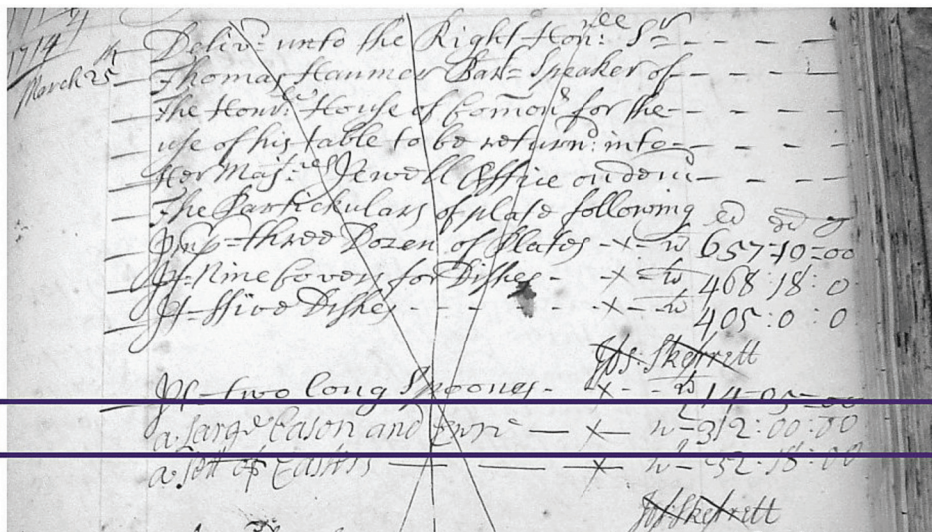 1714
March 25
Deliv:d unto the Right Hon:ble Sr
Thomas Hanmer Bart= Speaker of
the Hon:ble House of Com̄ons for the
use of his table to be return:d into
Her Maj:ties Jewell Office on dem
The Partickulars of plate following oz dt g
three Dozen of Plates - x - w 657-10=00
Nine Covers for Dishes - x - w 468:18:0
ffive Dishes - - - - x - w 405:0:0
Jos: Skerrett
two long Spoones - x - w 14-05=00
a large Bason and Ewre — x — w=312:00:00
a Sett of Castrs — — x — w=52:18:00
Jos: Skerrett